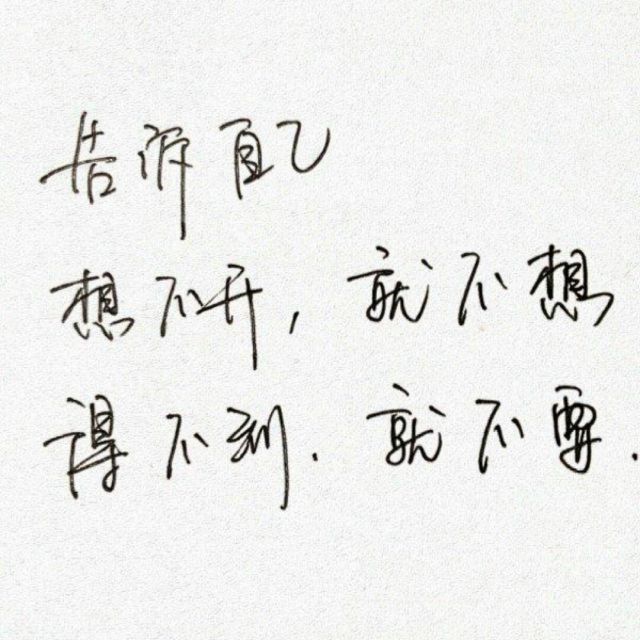 告诉自己
想不开,就不想
得不到.就不要.